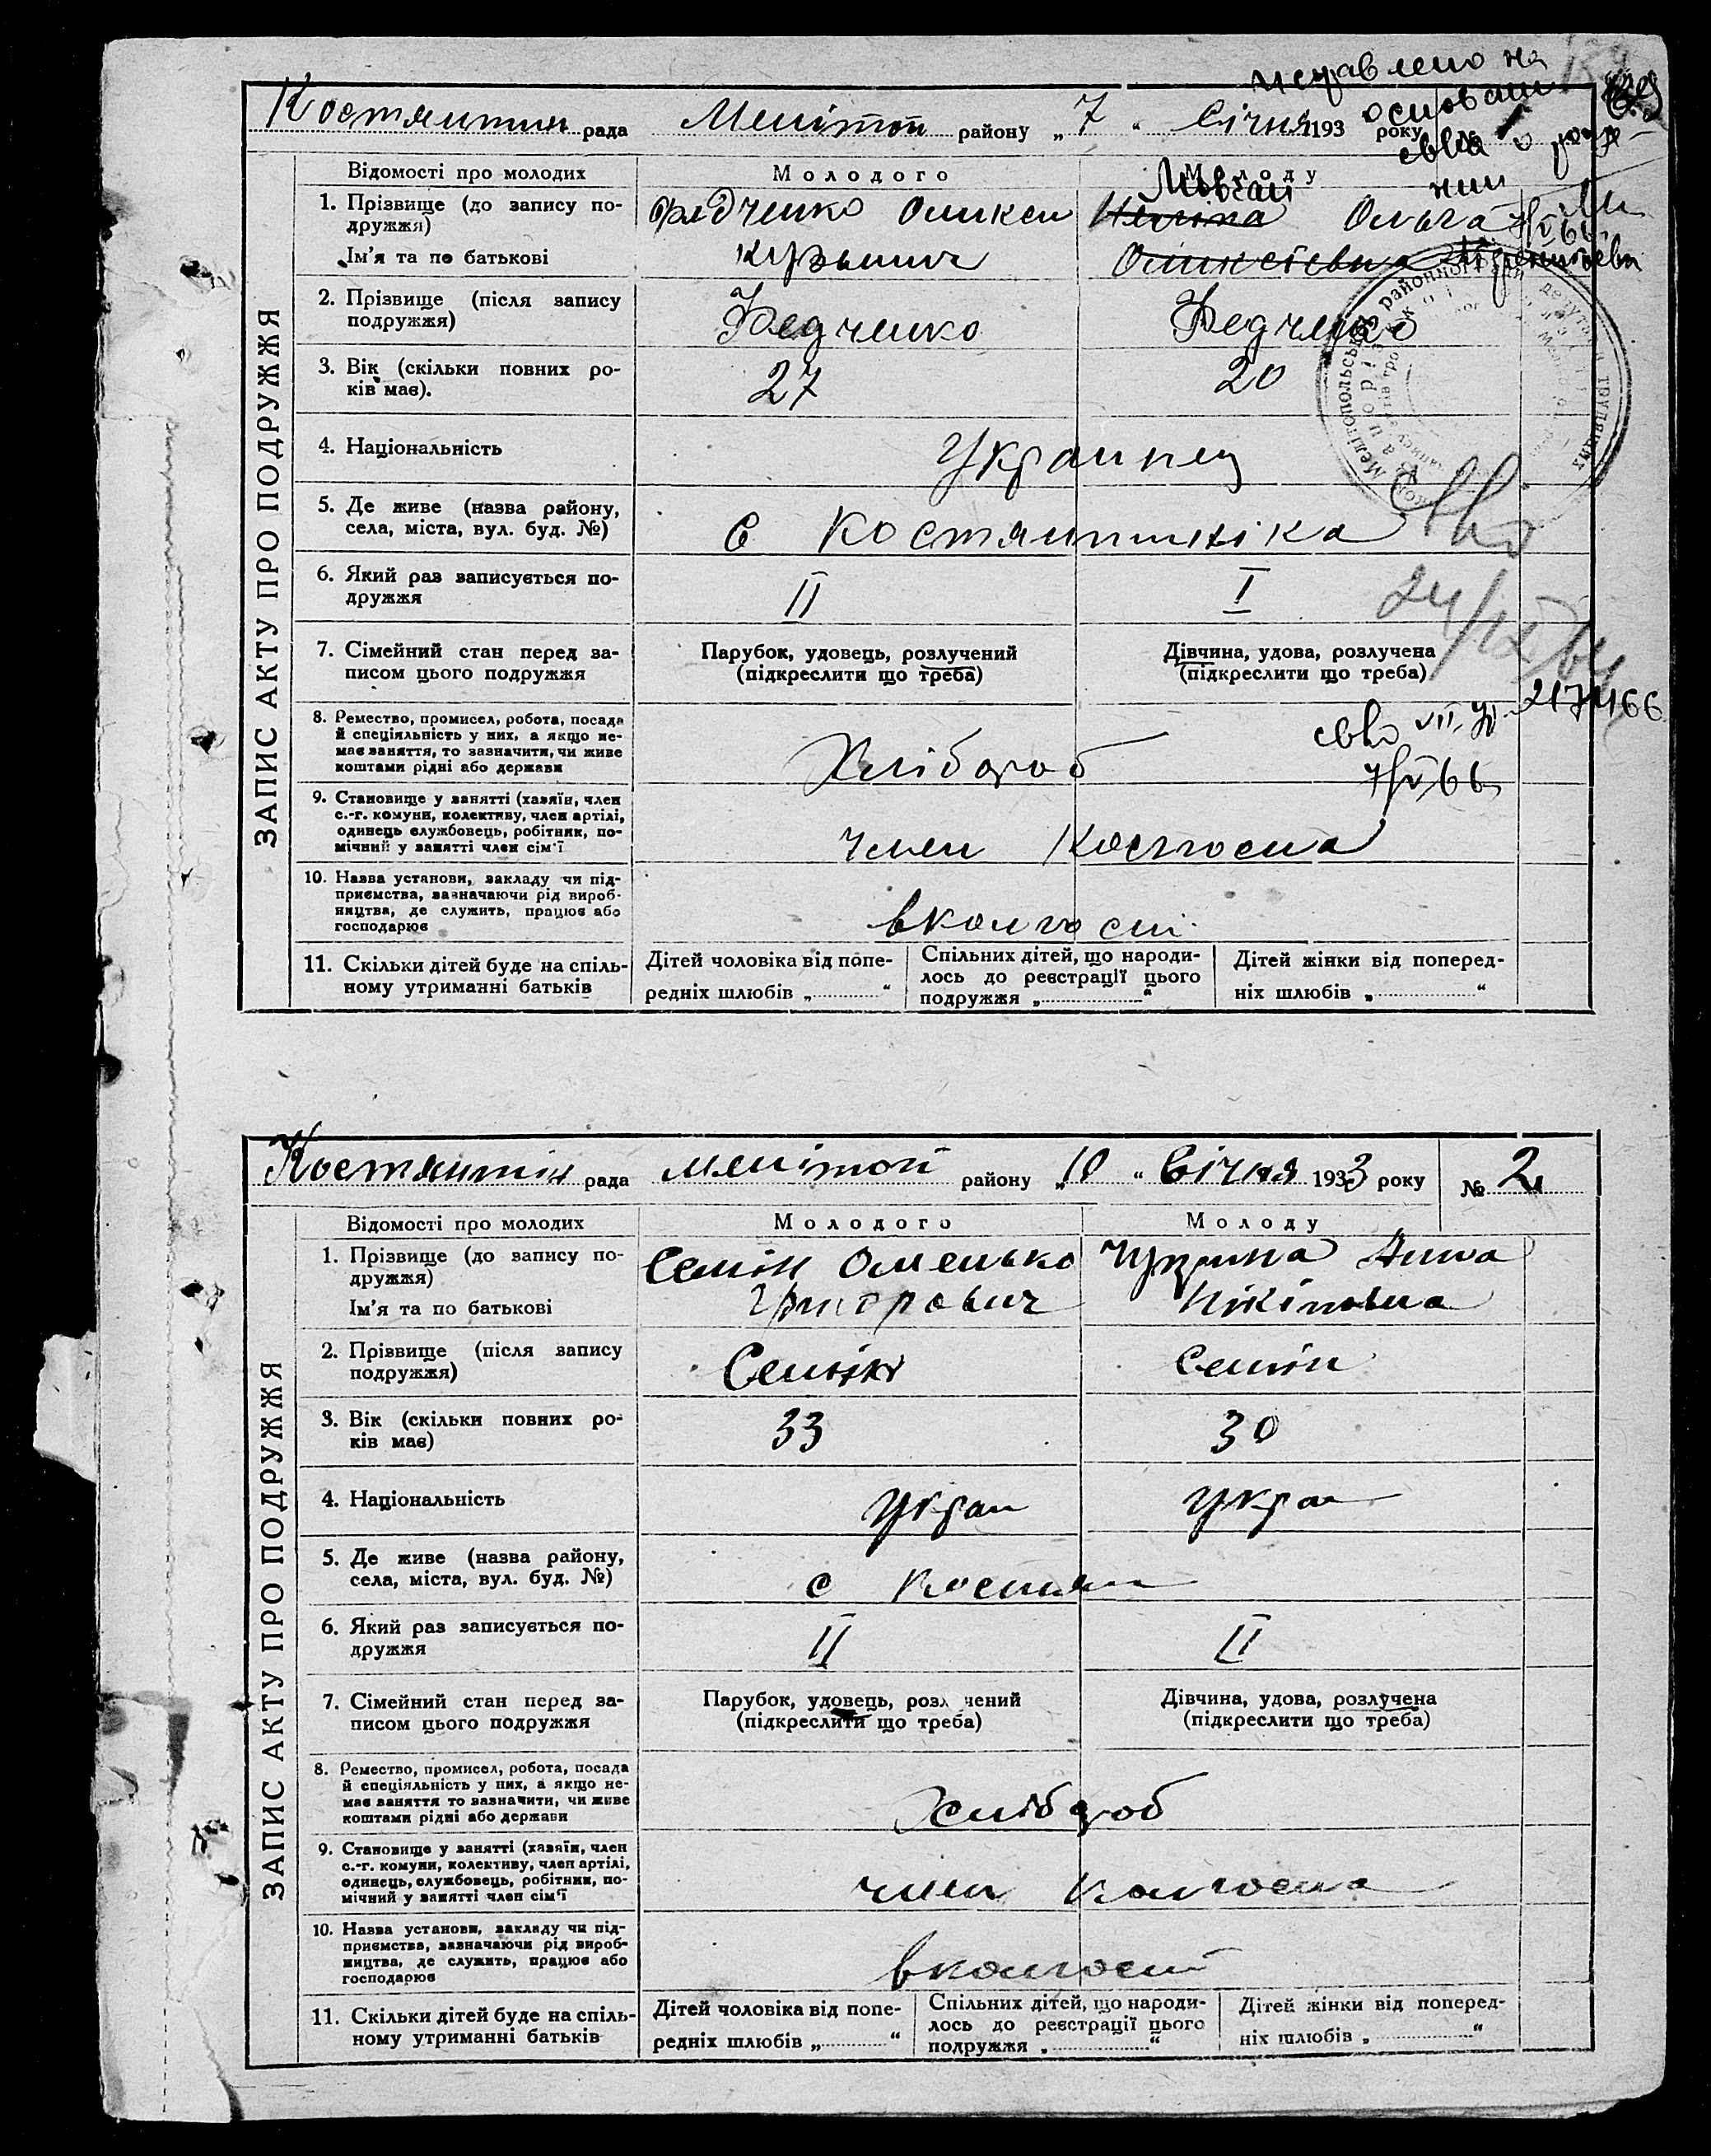 исправлено на
Костянтин рада Мелітоп району „ 7 “ Січня 193 року № 1
основан
ЗАПИС АКТУ ПРО ПОДРУЖЖЯ
Відомості про молодих Молодого Молоду
1. Прізвище (до запису по-
дружжя)
Ім'я та по батькові
Федченко Оликсій Ольга
2. Прізвище (після запису
подружжя)
Федченко Федченко
3. Вік (скільки повних ро-
ків має).
27 20
4. Національність
Украинец
5. Де живе (назва району,
села, міста, вул. буд. №)
с Костянтинівка
6. Який раз записується по-
дружжя
II I
7. Сімейний стан перед за-
писом цього подружжя
Парубок, удовець, розлучений
(підкреслити що треба)
Дівчина, удова, розлучена
(підкреслити що треба)
24/IX/64
217466
8. Ремество, промисел, робота, посада
й спеціяльність у них, а якщо не-
має заняття, то зазначити, чи живе
коштами рідні або держави
Хлібороб
7/V/66
9. Становище у занятті (хазяїн, член
с.-г. комуни, колективу, член артілі,
одинець службовець, робітник, по-
мічний у занятті член сім'ї
член Колгоспа
10. Назва установи, закладу чи під-
приємства, зазначаючи рід вироб-
ництва, де служить, працює або
господарює
в колгоспі
11. Скільки дітей буде на спіль-
ному утриманні батьків
Дітей чоловіка від попе-
редніх шлюбів „ “
Спільних дітей, що народи-
лось до реєстрації цього
подружжя „ “
Дітей жінки від поперед-
ніх шлюбів „ “
Костянтін рада Мелітоп району „ 10 “ Січня 1933 року № 2
ЗАПИС АКТУ ПРО ПОДРУЖЖЯ
Відомості про молодих Молодого Молоду
1. Прізвище (до запису по-
дружжя)
Ім'я та по батькові
Семін Омелько Анна
Григорович
2. Прізвище (після запису
подружжя)
Семін Семін
3. Вік (скільки повних ро-
ків має)
33 30
4. Національність
Украи Укра
5. Де живе (назва району,
села, міста, вул. буд. №)
с Костян
6. Який раз записується по-
дружжя
II II
7. Сімейний стан перед за-
писом цього подружжя
Парубок, удовець, розлучений
(підкреслити що треба)
Дівчина, удова, розлучена
(підкреслити що треба)
8. Ремество, промисел, робота, посада
й спеціяльність у них, а якщо не-
має заняття то зазначити, чи живе
коштами рідні або держави
Хлібороб
9. Становище у занятті (хазяїн, член
с.-г. комуни, колективу, член артілі,
одинець, службовець, робітник, по-
мічний у занятті член сім'ї
член Колгоспа
10. Назва установи, закладу чи під-
приємства, зазначаючи рід вироб-
ництва, де служить, працює або
господарює
в колгоспі
11. Скільки дітей буде на спіль-
ному утриманні батьків
Дітей чоловіка від попе-
редніх шлюбів „ “
Спільних дітей, що народи-
лось до реєстрації цього
подружжя „ “
Дітей жінки від поперед-
ніх шлюбів „ “